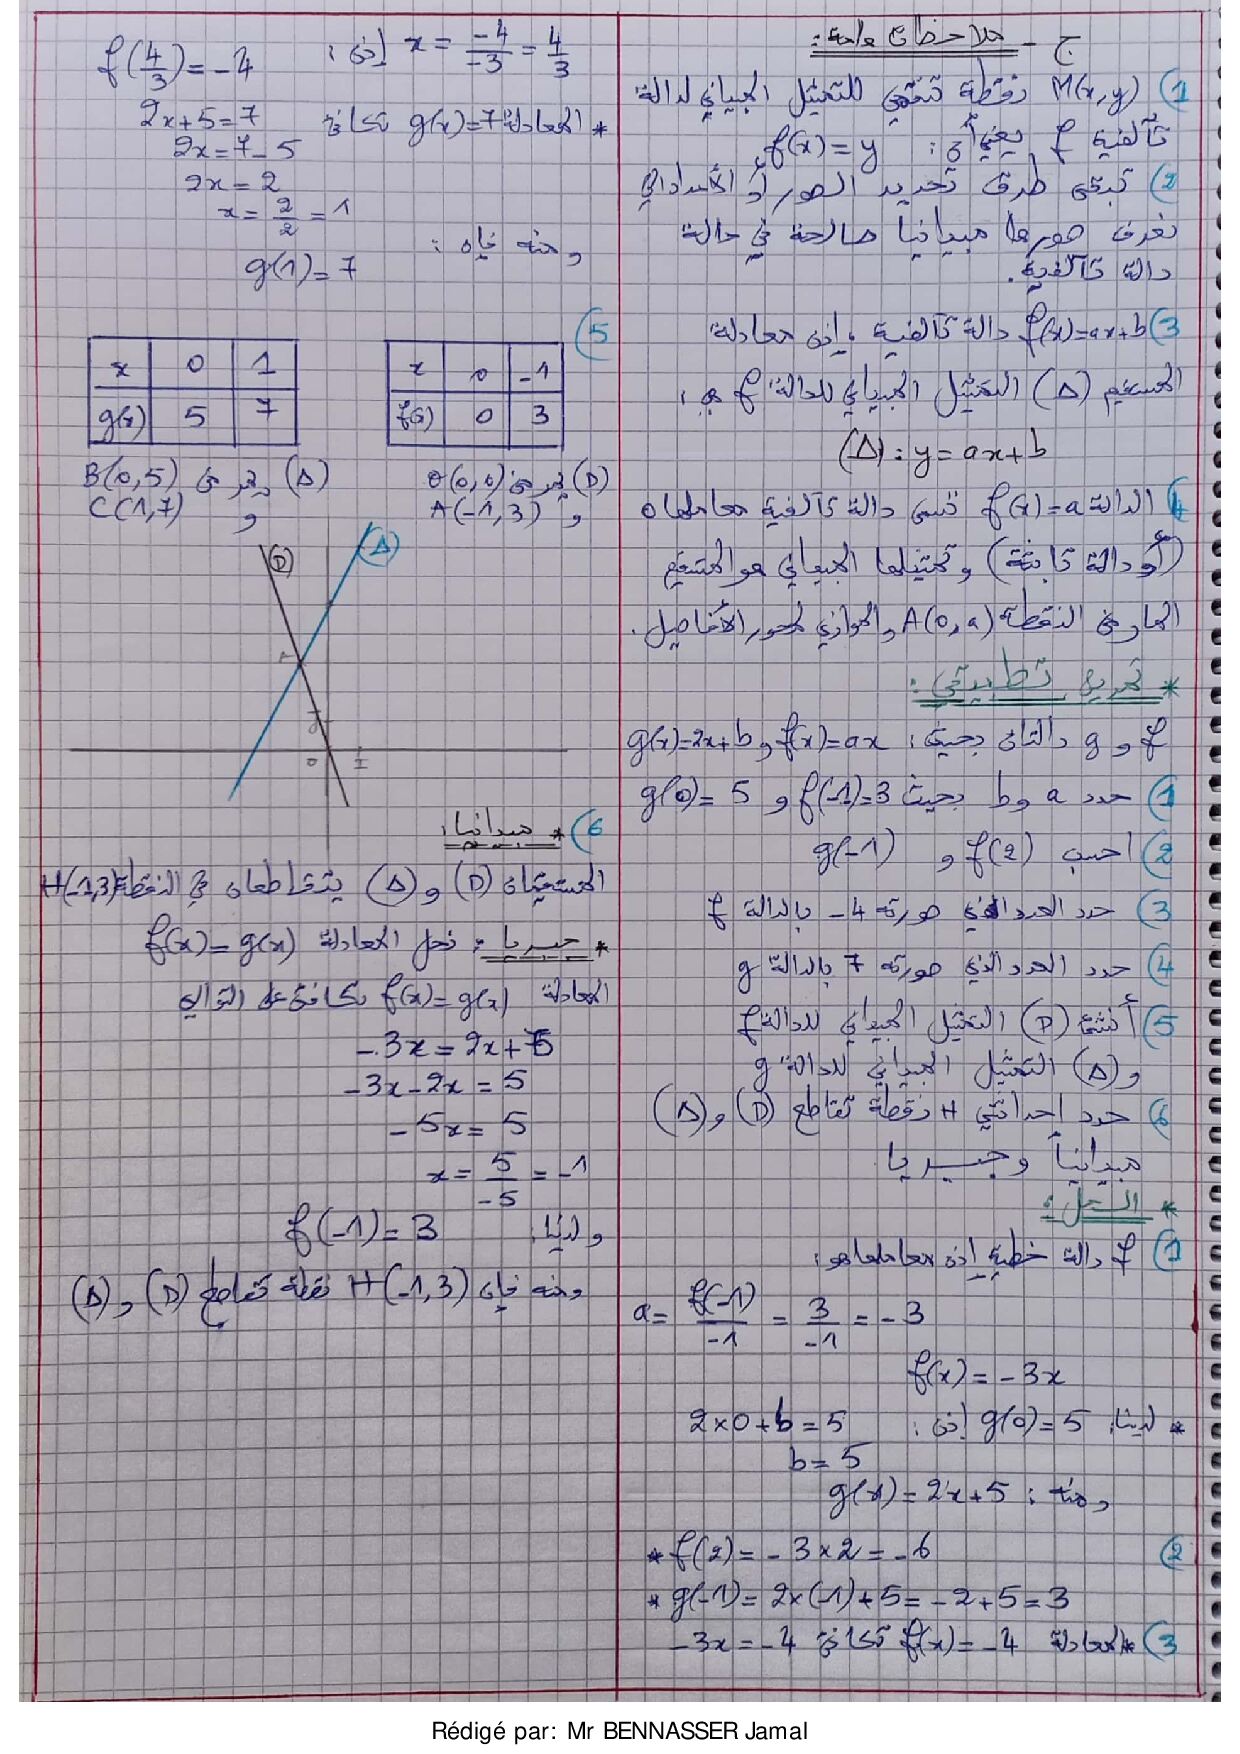 ج - ملاحظات هامة:
1) M(x,y) نقطة تنتمي للتمثيل المبياني لدالة
تآلفية f يعني أن: f(x)=y
2) تبقى طرق تحديد الصور أو الأعداد التي
نعرف صورها مبيانيا صالحة في حالة
دالة تآلفية.
3) f(x)=ax+b دالة تآلفية، إذن معادلة
المستقيم (Δ) التمثيل المبياني للدالة f هي:
(Δ): y=ax+b
4) الدالة f(x)=a تسمى دالة تآلفية معاملها 0
(أو دالة ثابتة) وتمثيلها المبياني هو المستقيم
المار من النقطة A(0,a) والموازي لمحور الأفاصيل.
* تمرين تطبيقي:
f و g دالتان بحيث: f(x)=ax و g(x)=2x+b
1) حدد a و b بحيث f(-1)=3 و g(0)=5
2) احسب f(2) و g(-1)
3) حدد العدد الذي صورته -4 بالدالة f
4) حدد العدد الذي صورته 7 بالدالة g
5) أنشئ (D) التمثيل المبياني للدالة f
و (Δ) التمثيل المبياني للدالة g
6) حدد احداثيتي H نقطة تقاطع (D) و (Δ)
مبيانياً وجبريا
* الحل:
1) f دالة خطية إذن معاملها هو:
a = f(-1)/-1 = 3/-1 = -3
f(x) = -3x
* لدينا: g(0)=5 إذن: 2×0+b=5
b=5
ومنه: g(x)=2x+5
2) * f(2) = -3×2 = -6
* g(-1) = 2×(-1)+5 = -2+5 = 3
3) * المعادلة f(x)=-4 تكافئ -3x=-4
إذن: x = -4/-3 = 4/3 f(4/3)=-4
* المعادلة g(x)=7 تكافئ 2x+5=7
2x=7-5
2x=2
x=2/2=1
ومنه فإن:
g(1)=7
5)
x 0 -1
f(x) 0 3
x 0 1
g(x) 5 7
(D) يمر من O(0,0)
و A(-1,3)
(Δ) يمر من B(0,5)
و C(1,7)
(D) (Δ)
A
J
O I
6) * مبيانيا:
المستقيمان (D) و (Δ) يتقاطعان في النقطة H(-1,3)
* جبريا: نحل المعادلة f(x)=g(x)
المعادلة f(x)=g(x) تكافئ على التوالي
-3x=2x+5
-3x-2x=5
-5x=5
x=5/-5=-1
ولدينا: f(-1)=3
ومنه فإن H(-1,3) نقطة تقاطع (D) و (Δ)
Rédigé par: Mr BENNASSER Jamal